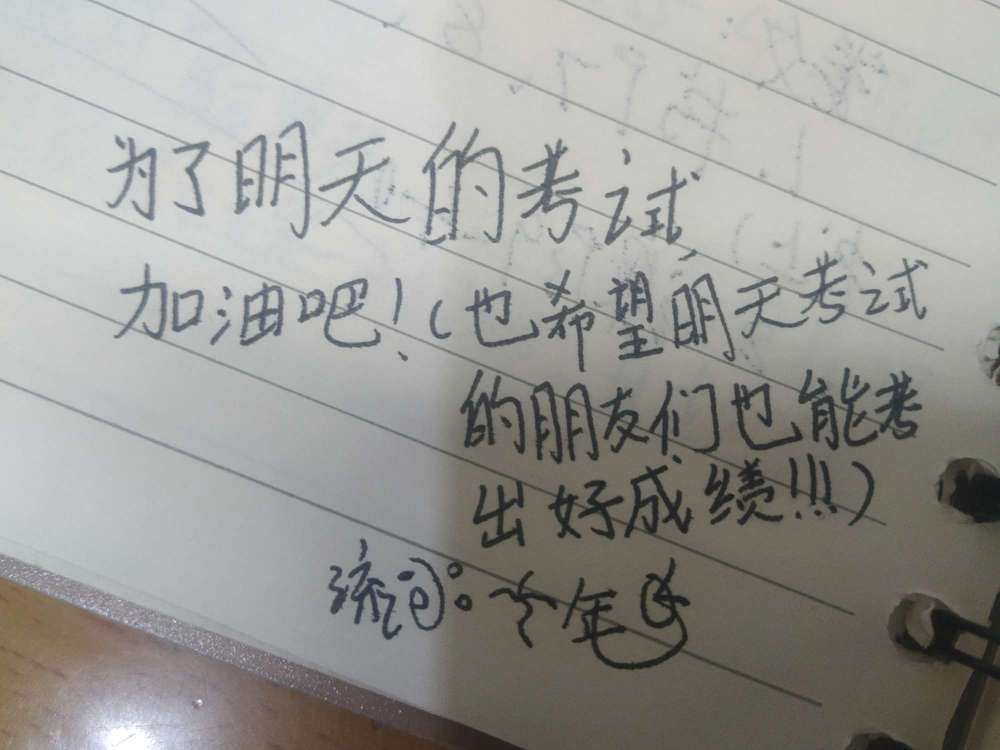 为了明天的考试
加油吧!(也希望明天考试
的朋友们也能考
出好成绩!!!)